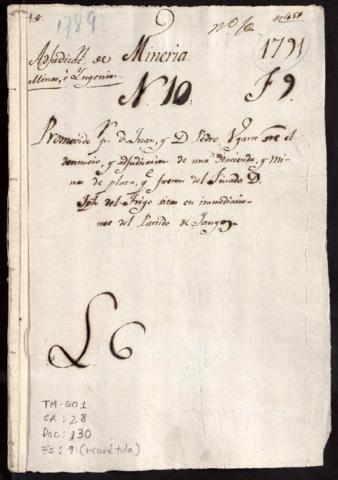 1789
1791
Adjudicac.n de Mineria
Minas, ò Yngenios
N. 10. F 9.
Promovido p.r D. Juan, y D. Pedro Ugarte sre el
denuncio, y adjudicacion de una Hacienda, y Mi-
nas de plata, q.e fueron del finado D.
Jph. del Trigo sitas en immediacio-
nes del Partido de Jauja
L 6
TM-GO1
CA: 28
DOC: 130
FS: 9 (+ carátula)